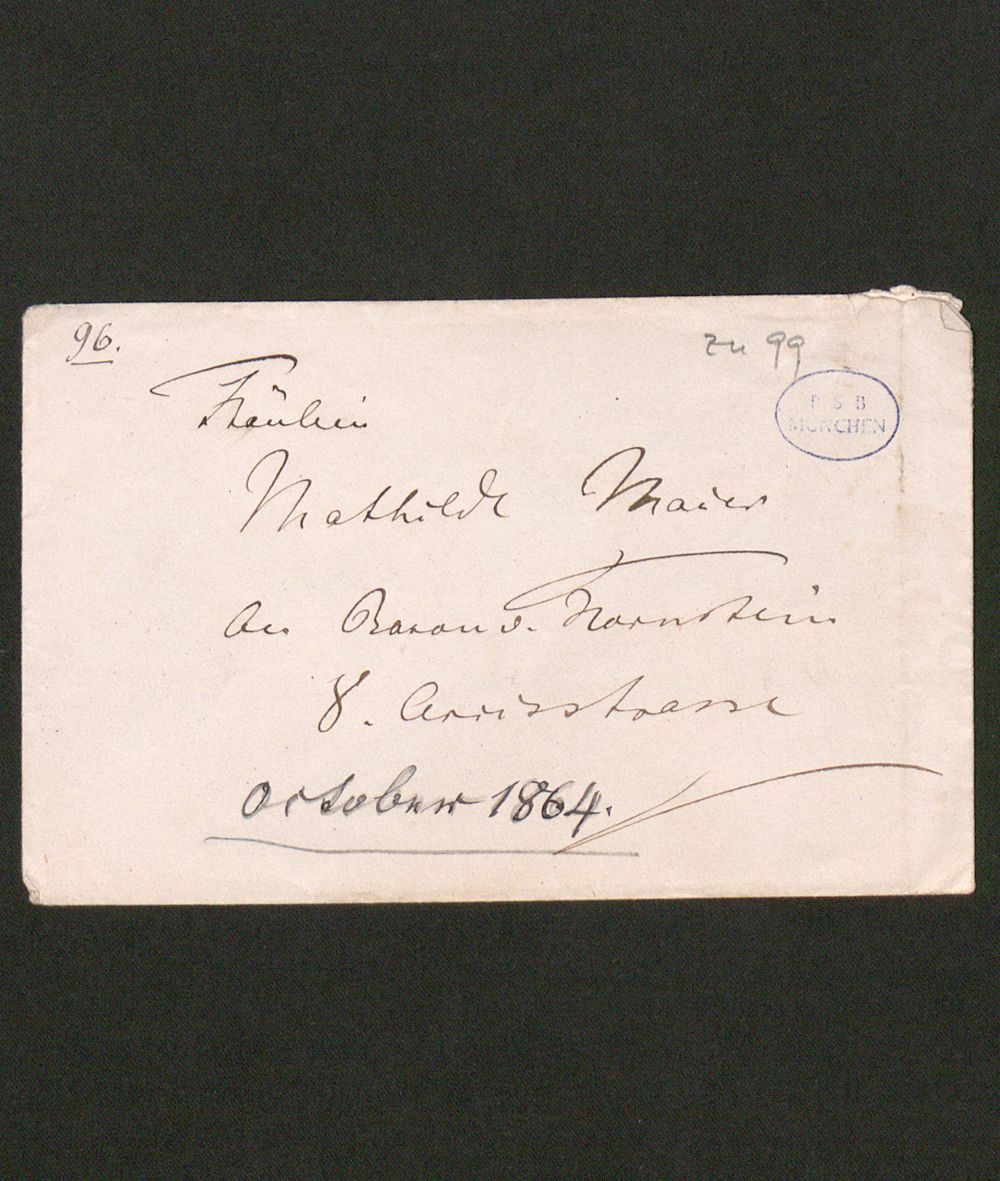 96.
zu 99
B S B
MÜNCHEN
Fräulein
Mathilde Maier
Baron v. Hornstein
8. Arcisstrasse
October 1864.